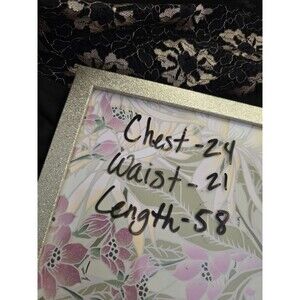 Chest-24
Waist-21
Length-58